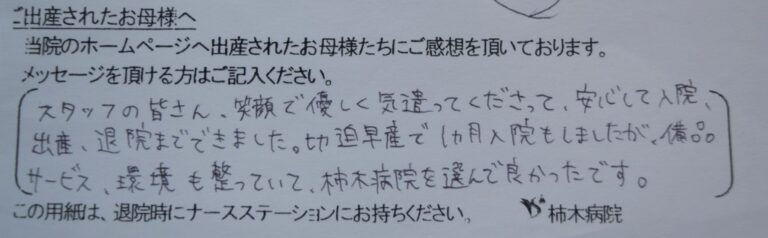 ご出産されたお母様へ
当院のホームページへ出産されたお母様たちにご感想を頂いております。
メッセージを頂ける方はご記入ください。
スタッフの皆さん、笑顔で優しく気遣ってくださって、安心して入院、
出産、退院までできました。切迫早産で1カ月入院もしましたが、備品
サービス、環境も整っていて、柿木病院を選んで良かったです。
この用紙は、退院時にナースステーションにお持ちください。 柿木病院